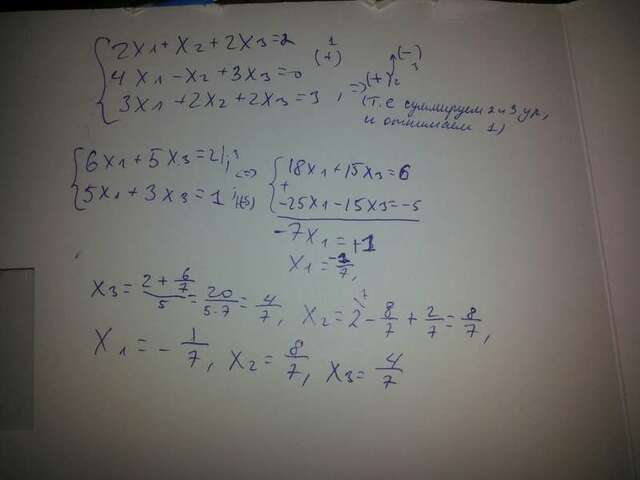 2x1 + x2 + 2x3 = 2
4x1 - x2 + 3x3 = 0
3x1 + 2x2 + 2x3 = 3, =>
1 (+)
(+) 2 (-) 3
(т.е суммируем 2 и 3 ур,
и отнимаем 1)
6x1 + 5x3 = 2 |·3 <=>
5x1 + 3x3 = 1
18x1 + 15x3 = 6
+
-25x1 - 15x3 = -5
-7x1 = +1
x1 = -1/7,
x3 = (2 + 6/7)/5 = 20/(5·7) = 4/7, x2 = 2 - 8/7 + 2/7 = 8/7,
x1 = - 1/7, x2 = 8/7, x3 = 4/7